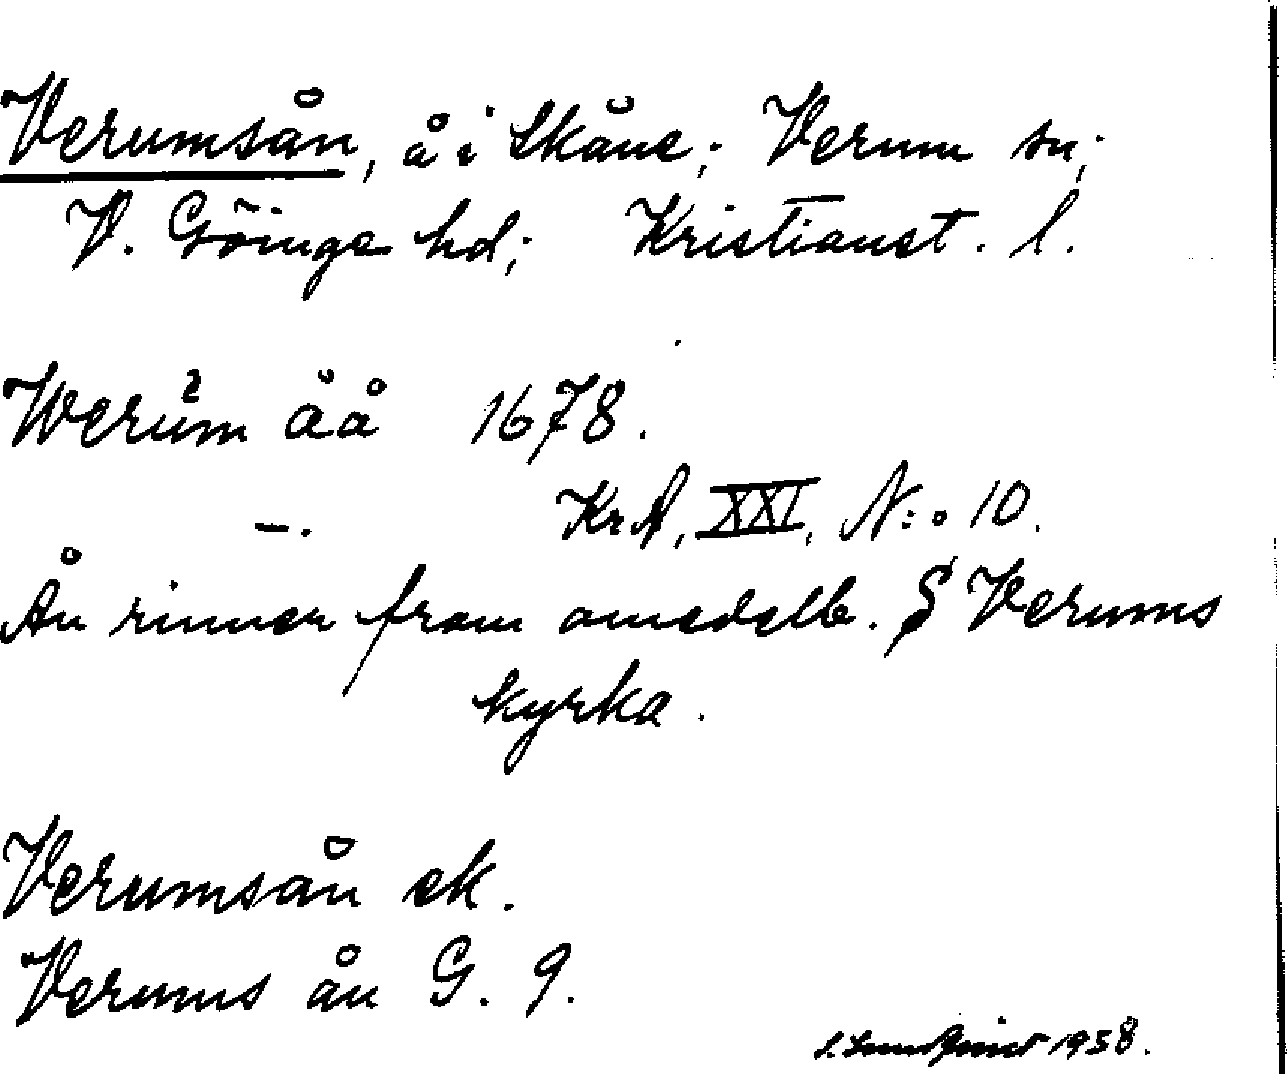 Verumsån, å i Skåne; Verum sn;
V. Göinge hd; Kristianst. l.
Werŭm åå 1678.
—. KrA, XXI, N:o 10.
Ån rinner fram omedelb. S Verums
kyrka.
Verumsån ek.
Verums ån G. 9.
1958.